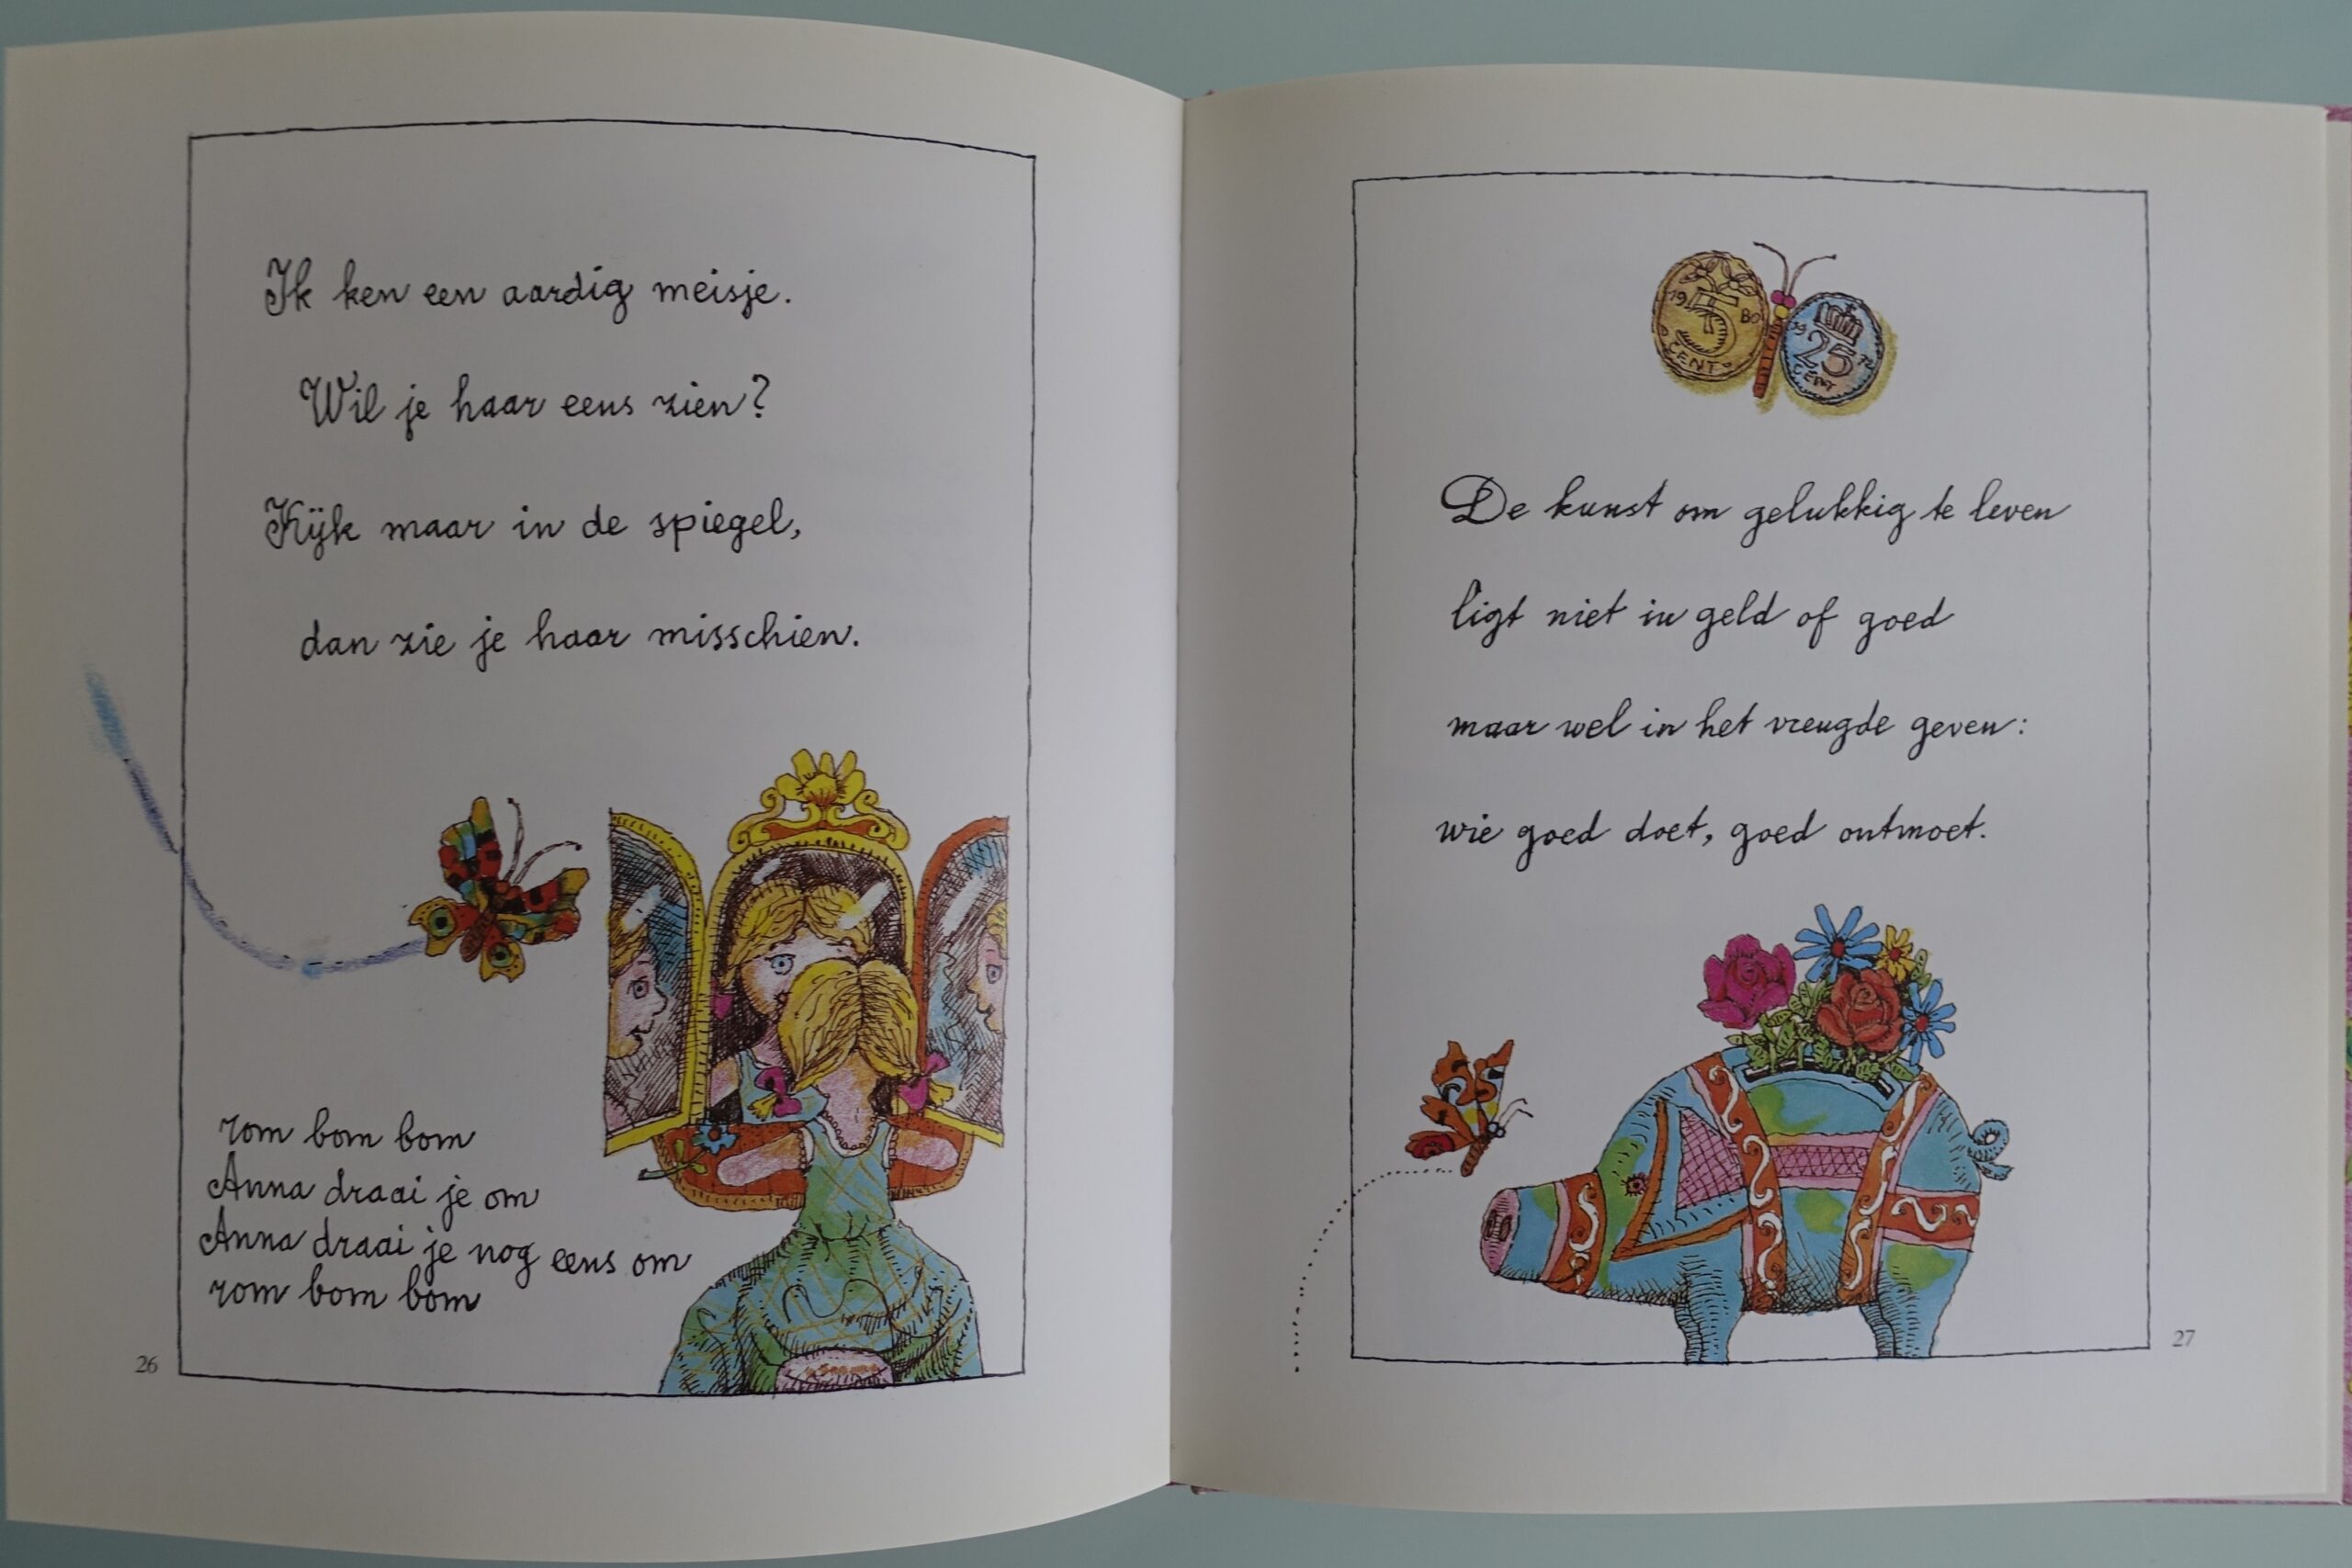 Ik ken een aardig meisje.
Wil je haar eens zien?
Kijk maar in de spiegel,
dan zie je haar misschien.
rom bom bom
Anna draai je om
Anna draai je nog eens om
rom bom bom
26
19 5 80
CENT
19 25 72
CENT
De kunst om gelukkig te leven
ligt niet in geld of goed
maar wel in het vreugde geven:
wie goed doet, goed ontmoet.
27